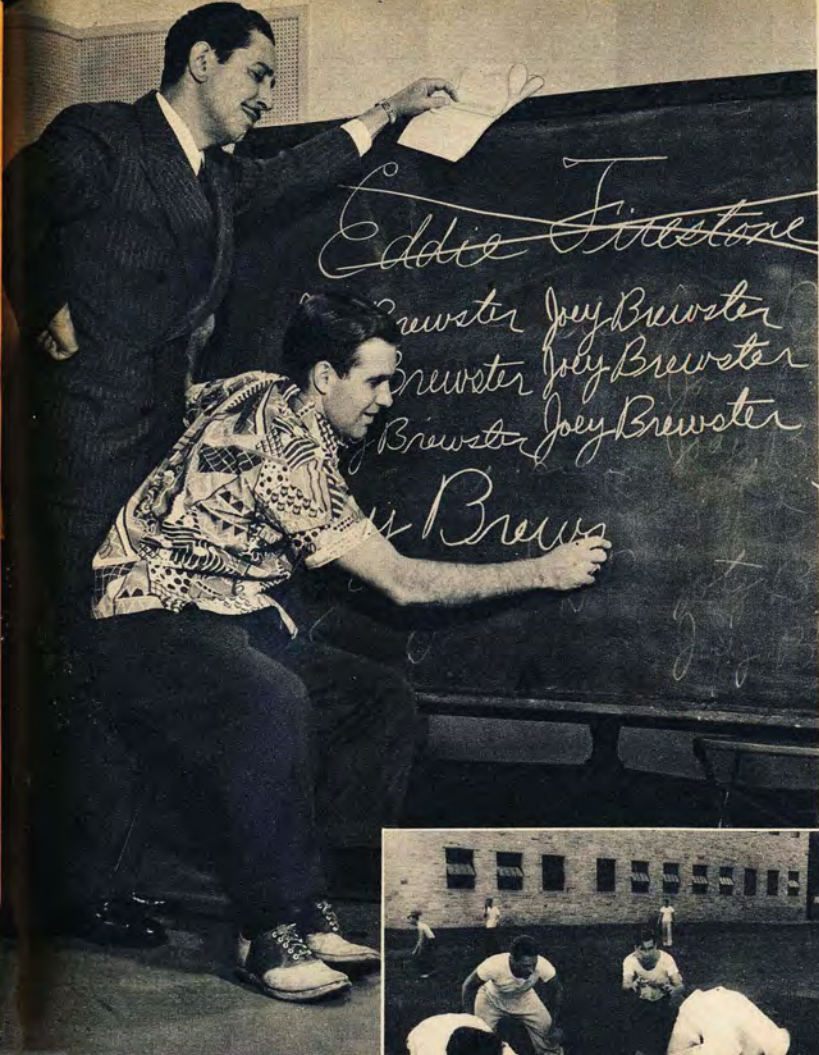 Eddie Firestone
Brewster Joey Brewster
Brewster Joey Brewster
y Brewster Joey Brewster
y Brews